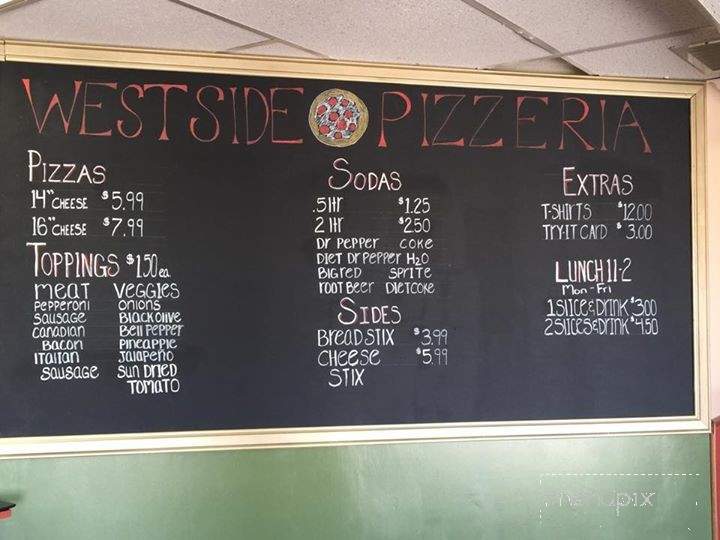 WESTSIDE PIZZERIA
PIZZAS
14" CHEESE $5.99
16" CHEESE $7.99
TOPPINGS $1.50 ea
MEAT VEGGIES
PEPPERONI ONIONS
SAUSAGE BLACK OLIVE
CANADIAN BELL PEPPER
BACON PINEAPPLE
ITALIAN JALAPEÑO
SAUSAGE SUN DRIED
TOMATO
SODAS
.5 ltr $1.25
2 ltr $2.50
DR PEPPER COKE
DIET DR PEPPER H2O
BIG RED SPRITE
ROOT BEER DIET COKE
SIDES
BREADSTIX $3.99
CHEESE $5.99
STIX
EXTRAS
T-SHIRTS $12.00
TRY-IT CARD $3.00
LUNCH 11-2
Mon-Fri
1 SLICE & DRINK $3.00
2 SLICES & DRINK $4.50